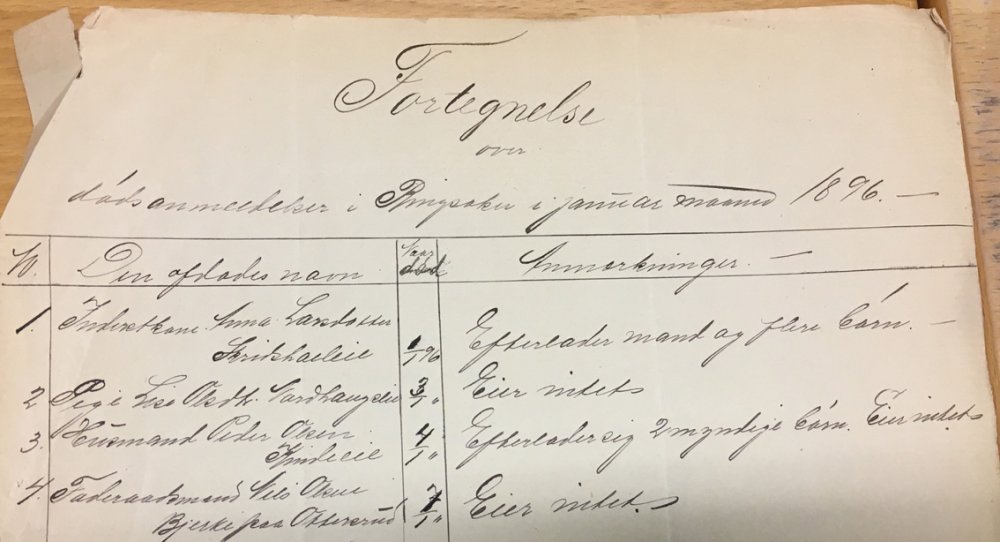 Fortegnelse
over
dödsanmeldelser i Ringsaker i januar maaned 1896. —
No. Den afdødes navn Naar död Anmerkninger. —
1. Inderstkone Anna Larsdatter
1/1 96 Efterlader mand og flere börn. —
2 Pige Lise Olsdtr. 3/1 " Eier intet
3. Husmand Peder Olsen 4/1 " Efterlader sig 2 myndige börn. Eier intet.
4. Föderaadsmand Nils Olsen
Bjerke paa Ottersrud 7/1 " Eier intet.